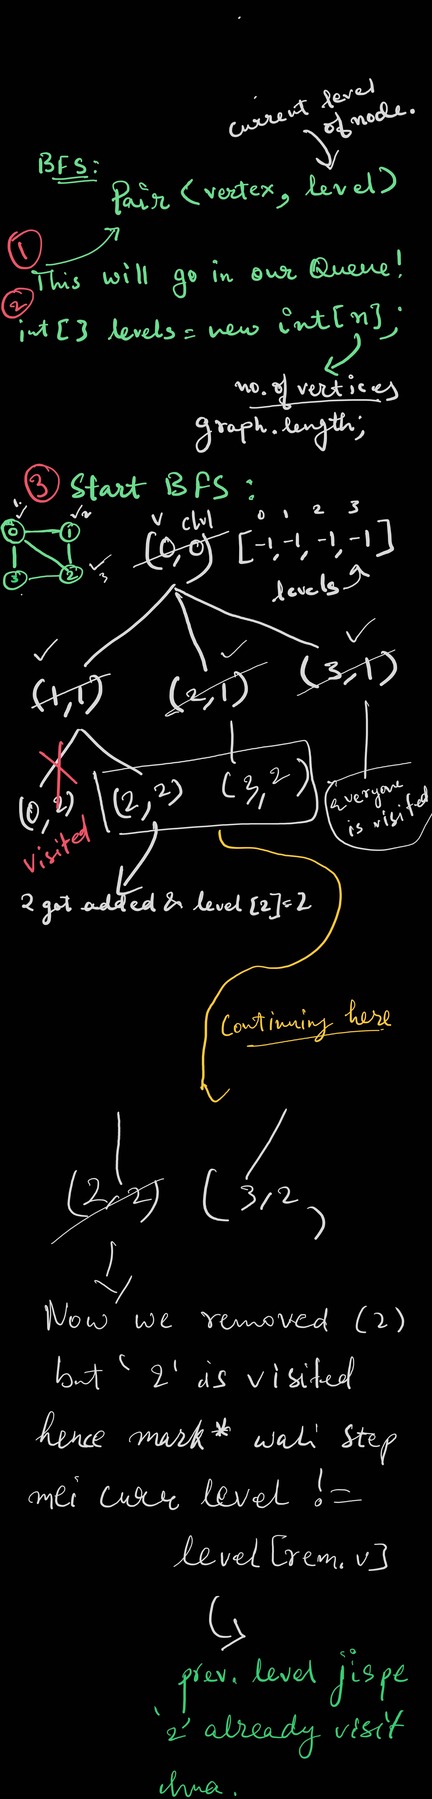 current level
of node.
BFS:
Pair (vertex, level)
1
This will go in our Queue!
2
int[] levels = new int[n];
no. of vertices
graph.length;
3 Start BFS :
1. 2
0 1
3 2
3
v clvl
(0,0)
0 1 2 3
[-1,-1,-1,-1]
levels
(1,1) (2,1) (3,1)
(0,2) (2,2) (3,2)
Everyone
is visited
Visited
2 got added & level[2]=2
Continuing here
(2,2) (3,2)
Now we removed (2)
but '2' is visited
hence mark* wali step
mei curr level !=
level[rem.v]
prev. level jispe
'2' already visit
hua.